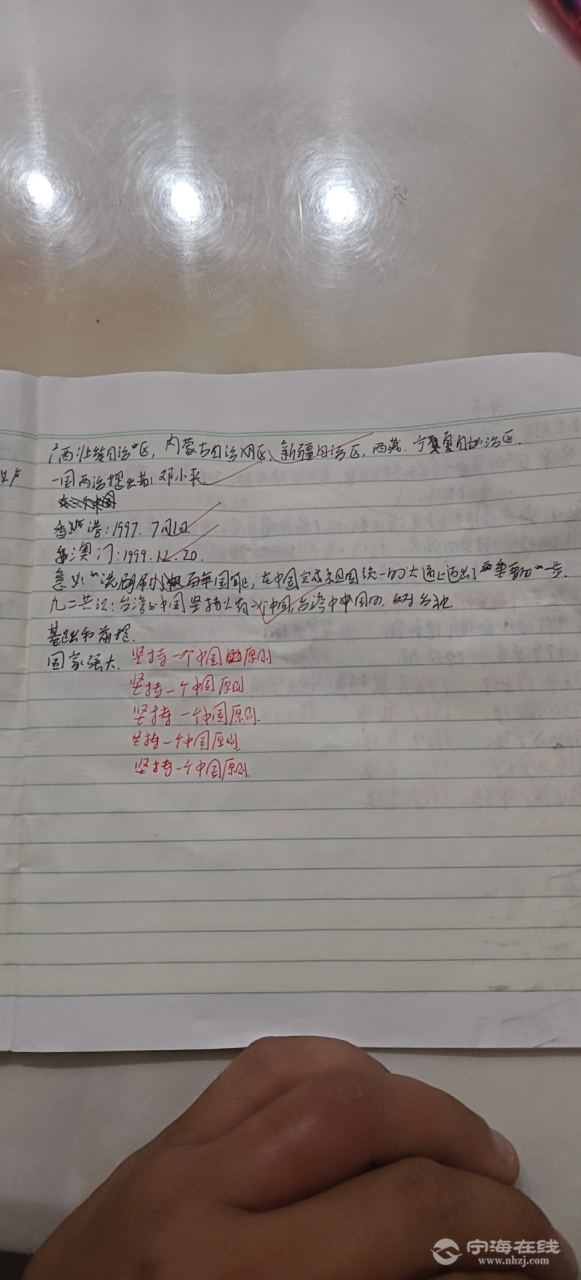 广西壮族自治区，内蒙古自治区，新疆自治区，西藏，宁夏自治区．
一国两治提出者：邓小平
香港：1997．7月1日
澳门：1999．12．20．
意义：洗刷 百年国耻，在中国完成祖国统一的大道上迈出了重要的一步
九二共识：台湾 中国 坚持 有一个中国 台湾 中国的
基础和前提．
国家强大．坚持一个中国的原则
坚持一个中国原则
坚持一个中国原则．
坚持一个中国原则
坚持一个中国原则
宁海在线
www.nhzj.com